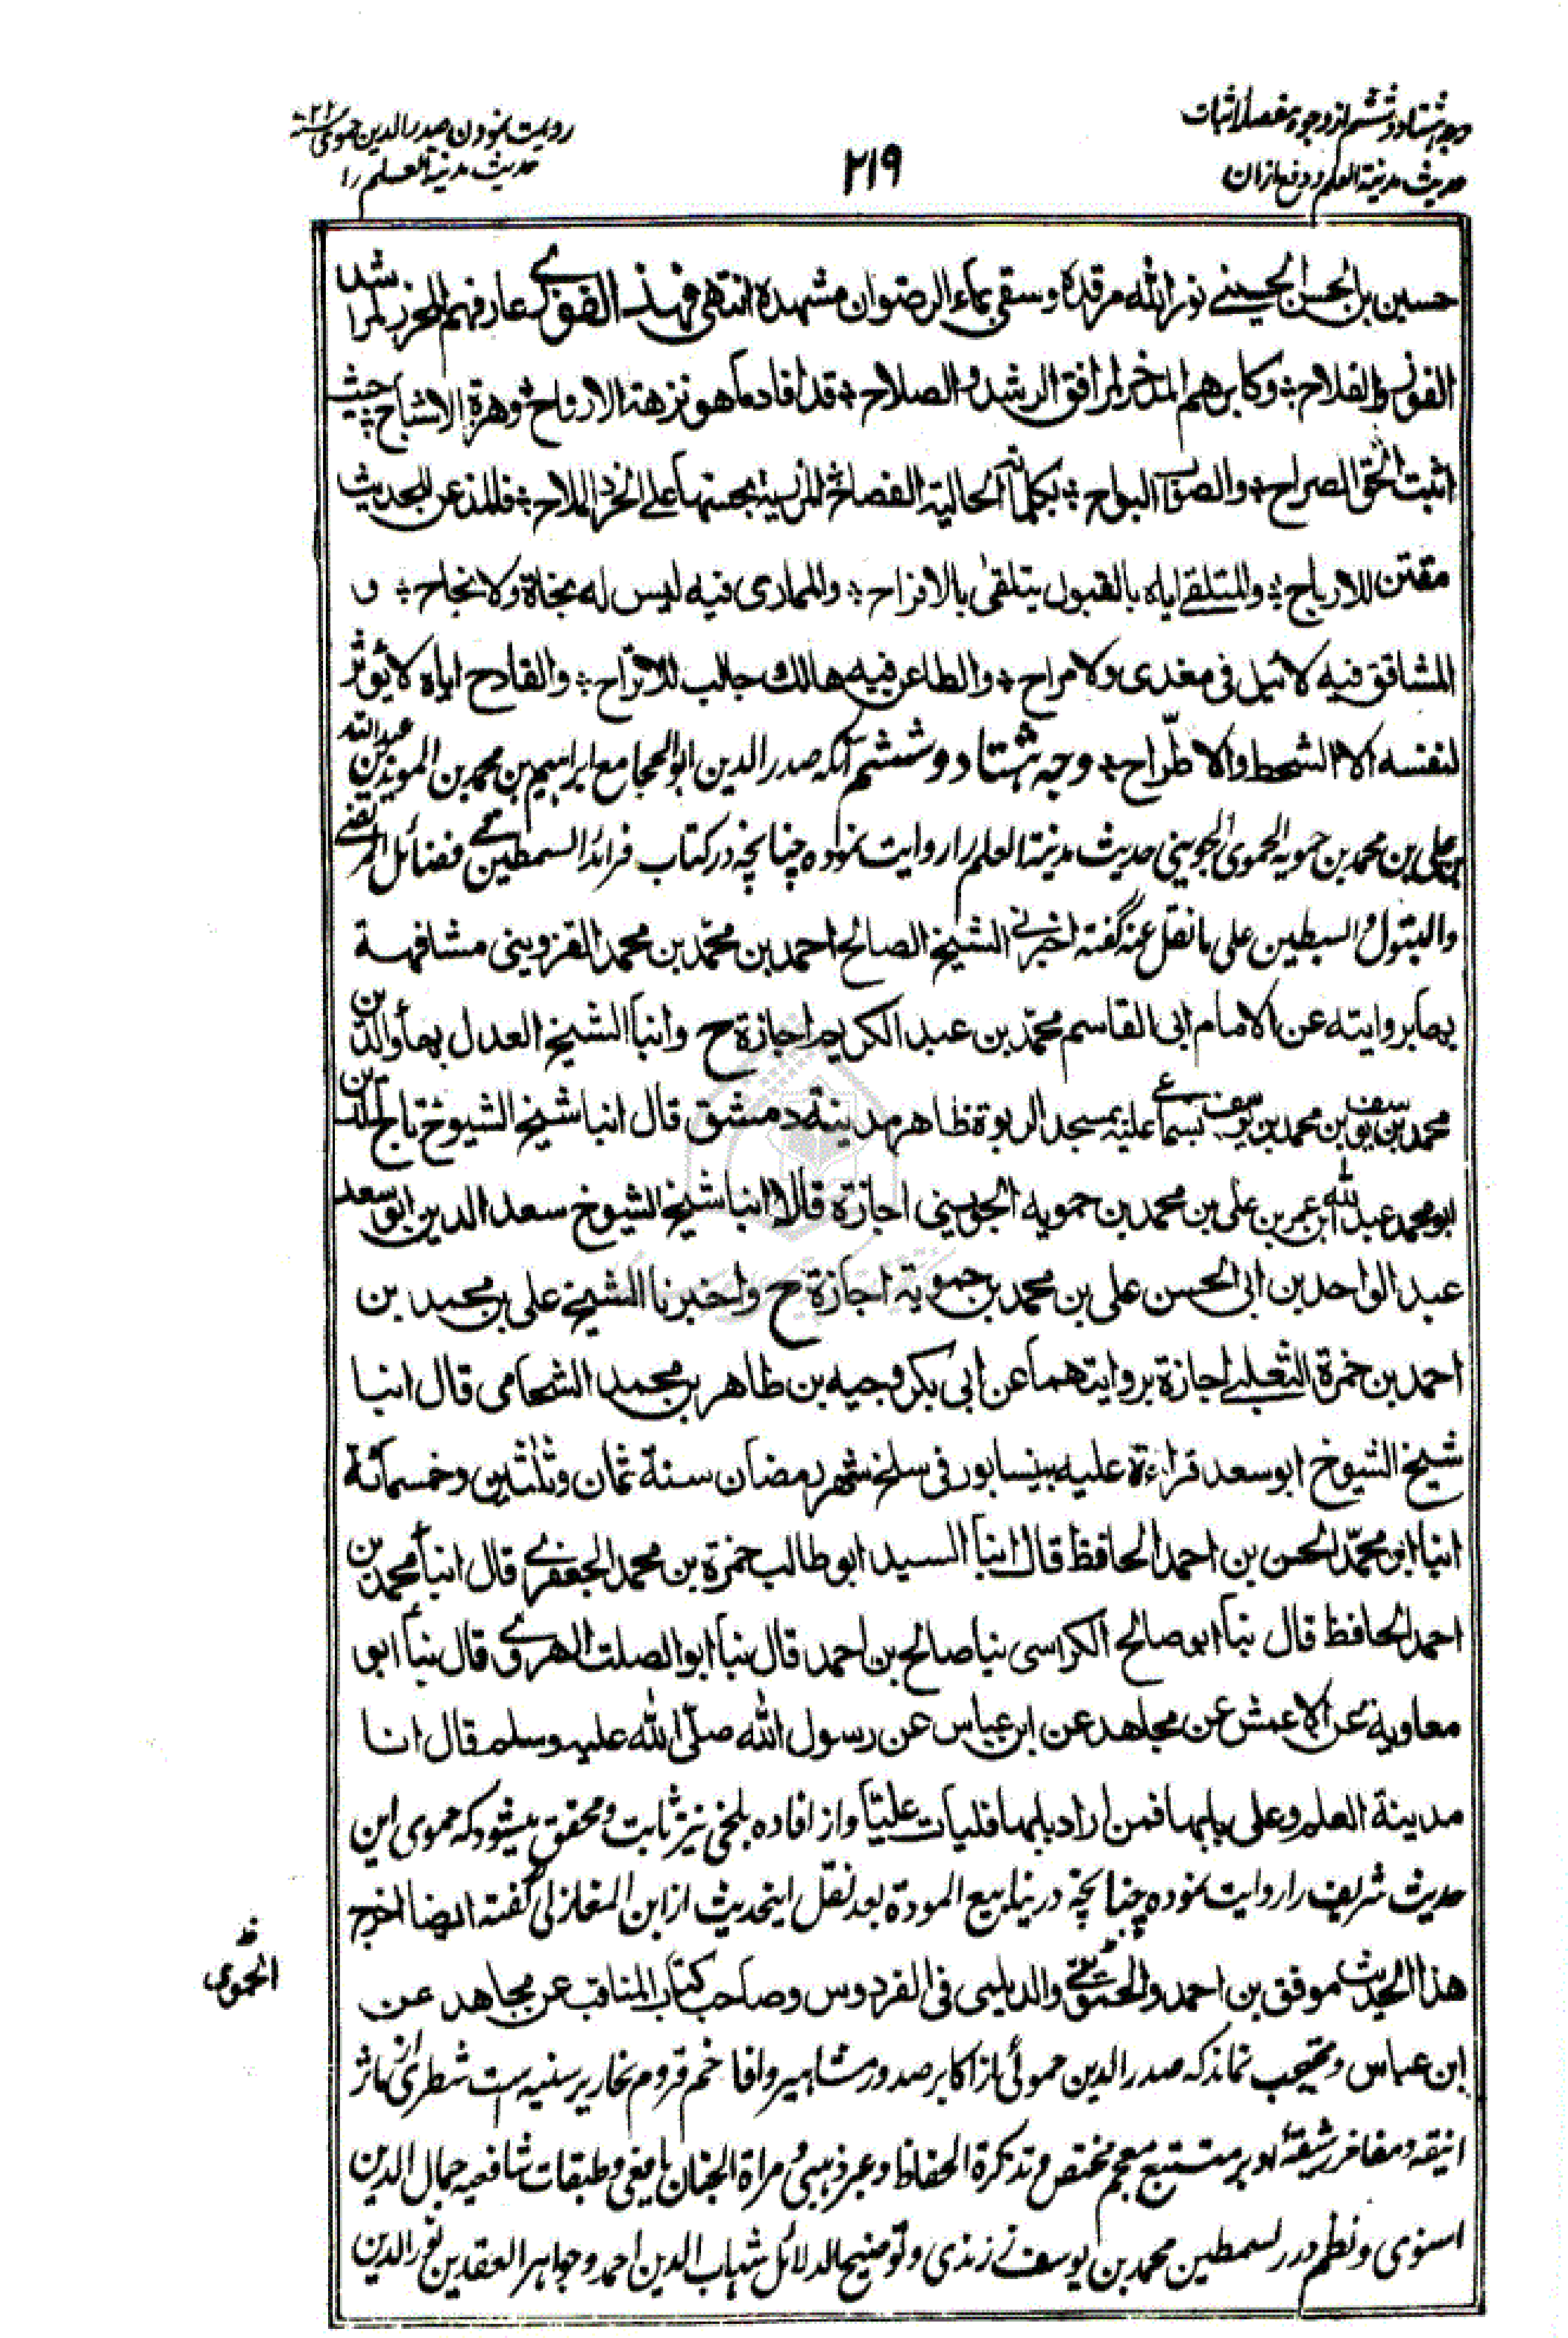 وجه هشتاد و ششم از وجوه مفصلۀ اثبات
حدیث مدینة العلم و دفع ازان
۲۱۹
روایت نمودن صدر الدین حموی
حدیث مدینة العلم را
حسین بن الحسن الحسینی نور الله مرقده وسقی بماء الرضوان مشهده انتهی فهذا الفوری عارفهم المحرز لمراشد
الفوز والفلاح وکابرهم المدخر لمرافق الرشد والصلاح قد افاد ما هو نزهة الارواح وهزة الاشباح حیث
اثبت الحق الصراح والصواب البواح بکلماته الحالیة الفصاح المزریة بحسنها علی الخرد الملاح فالمذعن للحدیث
مقتن للارباح والمتلقی ایاه بالقبول یتلقی بالافراح والمماری فیه لیس له نجاة ولا نجاح و
المشاقق فیه لا ئیل فی مغدی ولا مراح والطاعن فیه هالك جالب للاتراح والقادح ایاه لا یؤثر
لنفسه الا الشحط والاطّراح وجه هشتاد و ششم آنکه صدر الدین ابو المجامع ابراهیم بن محمد بن الموید بن عبد الله
بن علی بن محمد بن حمویه الحموی الجوینی حدیث مدینة العلم را روایت نموده چنانچه در کتاب فرائد السمطین فی فضائل المرتضی
والبتول والسبطین علی ما نقل عنه گفته اخبرنی الشیخ الصالح احمد بن محمّد بن محمد القزوینی مشافهة
بها بروایته عن الامام ابی القاسم محمّد بن عبد الکریم اجازة ح وانبا الشیخ العدل بهاء الدین
محمد بن یوسف بن محمد بن یوسف بسماعی علیه بمسجد الربوة ظاهر مدینة دمشق قال انبا شیخ الشیوخ تاج الدین
ابو محمد عبد الله ابن عمر بن علی بن محمد بن حمویه الجوینی اجازة قالا انبا شیخ الشیوخ سعد الدین ابو سعد
عبد الواحد بن ابی الحسن علی بن محمد بن حمویه اجازة ح واخبرنا الشیخ علی بن محمد بن
احمد بن حمزة الثعلبی اجازة بروایتهما عن ابی بکر وجیه بن طاهر بن محمد الشحامی قال انبا
شیخ الشیوخ ابو سعد قراءة علیه بنیسابور فی سلخ شهر رمضان سنة ثمان وثلثین وخمسمائة
انبا ابو محمّد الحسن بن احمد الحافظ قال انبا السید ابو طالب حمزة بن محمد الجعفری قال انبأ محمد بن
احمد الحافظ قال نبأ ابو صالح الکراسی نبا صالح بن احمد قال نبأ ابو الصلت الهروی قال نبأ ابو
معاویة عن الاعمش عن مجاهد عن ابن عباس عن رسول الله صلّی الله علیه وسلم قال انا
مدینة العلم وعلی بابها فمن اراد بابها فلیات علیّا و از افاده بلخی نیز ثابت و محقق میشود که حموی این
حدیث شریف را روایت نموده چنانچه در ینابیع المودة بعد نقل اینحدیث از ابن المغازلی گفته ایضا اخرج
هذا الحدیث موفق بن احمد والحموینی والدیلمی فی الفردوس وصاحب کتاب المناقب عن مجاهد عن
الحموی ظ
ابن عباس و محتجب نماند که صدر الدین حموئی از اکابر صدور مشاهیر و افاخم قروم نحاریر سنیه ست شطری از مآثر
انیقه و مفاخر رشیقۀ او بر متتبع معجم مختص و تذکرة الحفاظ و عبر ذهبی و مراة الجنان یافعی و طبقات شافعیه جمال الدین
اسنوی و نظم درر السمطین محمد بن یوسف زرندی و توضیح الدلائل شهاب الدین احمد و جواهر العقدین نور الدین